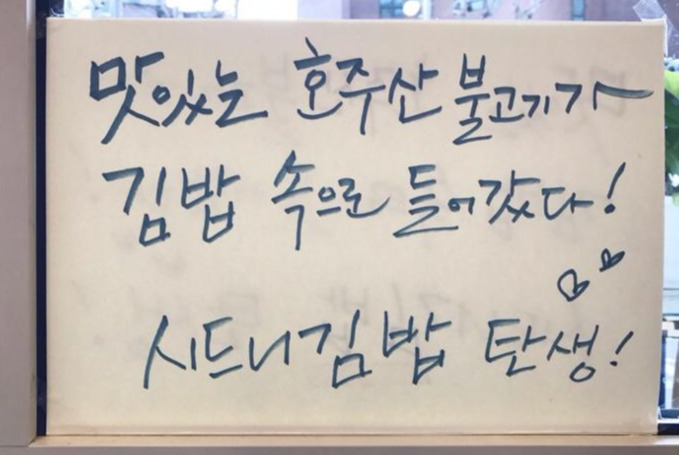 맛있는 호주산 불고기가
김밥 속으로 들어갔다!
시드니김밥 탄생!